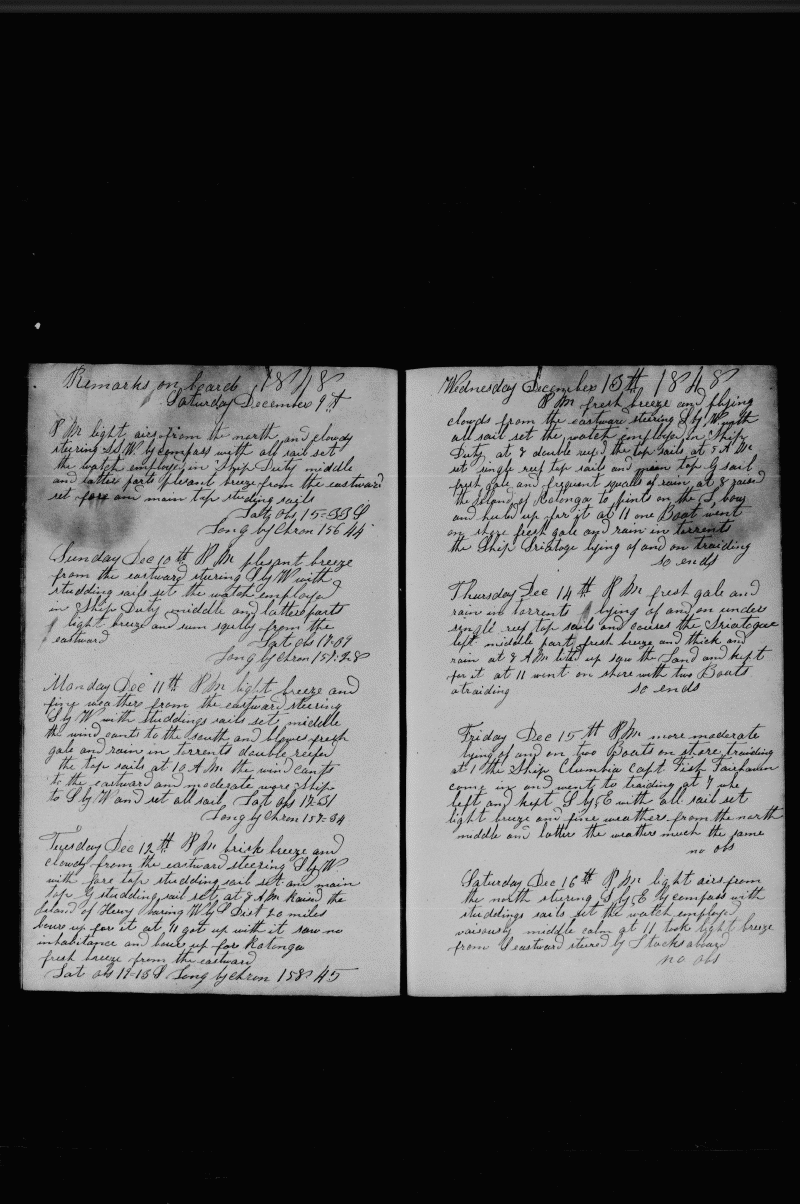 Remarks on board 1848
Saturday December 9th
P M light airs from the north and clowdy
steering S.S.W. by compass with all sail set
the watch employed in Ships Duty middle
and latter parts plesant breeze from the eastward
set fore and main top studing sails
Lat by Obs 15-53 S
Long by Chron 156 44
Sunday Dec 10th P M plesant breeze
from the eastward steering S by W with
studding sails set the watch employed
in Ships Duty middle and latter parts
light breeze and sum squly from the
eastward Lat Obs 17-09
Long by Chron 157-28
Monday Dec 11th P M light breeze and
fine weather from the eastward steering
S by W with studdings sails set middle
the wind cants to the south and blowes fresh
gale and rain in torrents double reefed
the top sails at 10 A M the wind cants
to the eastward and moderate wore Ship
to S by W and set all sail Lat Obs 17-51
Long by Chron 157-54
Tuesday Dec 12th P M brisk breeze and
clowdy from the eastward steering S by W
with fore top studding sail set and main
top G studding sail set at 8 A M Raised the
Island of Hervy baring W by S Dist 20 miles
bore up for it at 11 got up with it saw no
inhabitance and bore up for Rotonga
fresh breeze from the eastward
Lat obs 19-18 S Long by chron 158 45
Wednesday December 13th 1848
P M fresh breeze and flying
clouds from the eastward steering S by W with
all sail set the watch employed in Ships
Duty at 7 double reefd the top sails at 5 A M
set single reef top sails and main top G sail
fresh gale and frequent squalls of rain at 8 raised
the Island of Rotonga 2 points on the S bow
and huled up for it at 11 one Boat went
on shore fresh gale and rain in torrents
the Ship lying of and on traiding
so ends
Thursday Dec 14th P M fresh gale and
rain in torrents lying of and on under
single reef top sails and courses the
left middle part fresh breeze and thick and
rain at 8 A M lited up saw the Land and kept
for it at 11 went on shore with two Boats
a traiding so ends
Friday Dec 15th P M more moderate
lying of and on two Boats on shore traiding
at 1 the Ship Clumbia Capt Fish Fairhaven
come in and went to traiding at 7 we
left and kept S by E with all sail set
light breeze and fine weather from the north
middle and latter the weather much the same
no obs
Saturday Dec 16th P M light airs from
the north stering S by E by compass with
studdings sails set the watch employd
vairously middle calm at 11 took light breeze
from S eastward stured by Stocks aboard
no obs